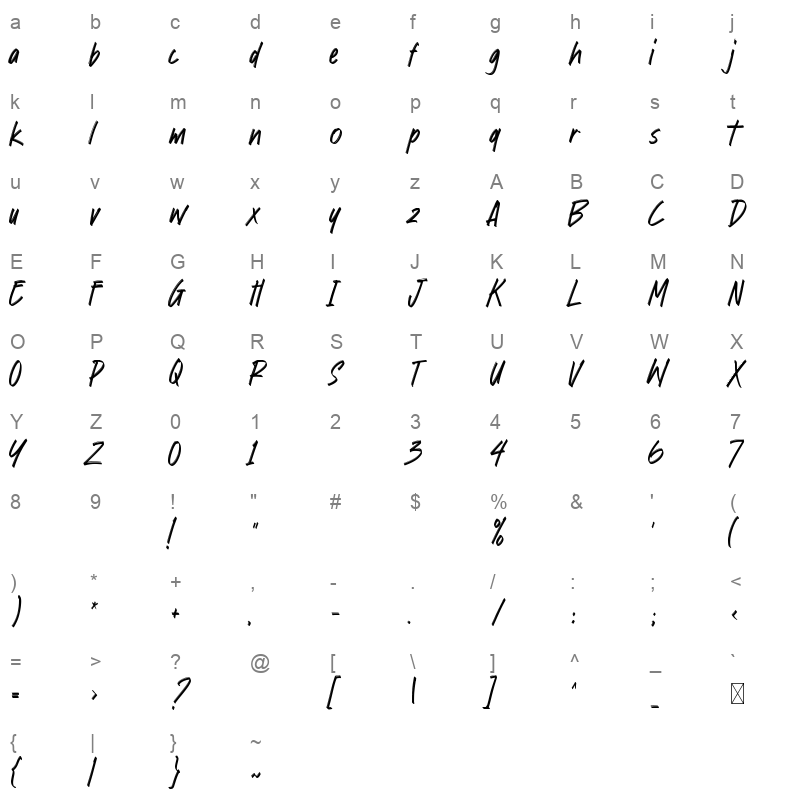 a b c d e f g h i j
a b c d e f g h i j
k l m n o p q r s t
k l m n o p q r s t
u v w x y z A B C D
u v w x y z A B C D
E F G H I J K L M N
E F G H I J K L M N
O P Q R S T U V W X
O P Q R S T U V W X
Y Z 0 1 2 3 4 5 6 7
Y Z 0 1 3 4 6 7
8 9 ! " # $ % & ' (
! " % ' (
) * + , - . / : ; <
) * + , - . / : ; <
= > ? @ [ \ ] ^ _ `
= > ? [ \ ] ^ _
{ | } ~
{ | } ~